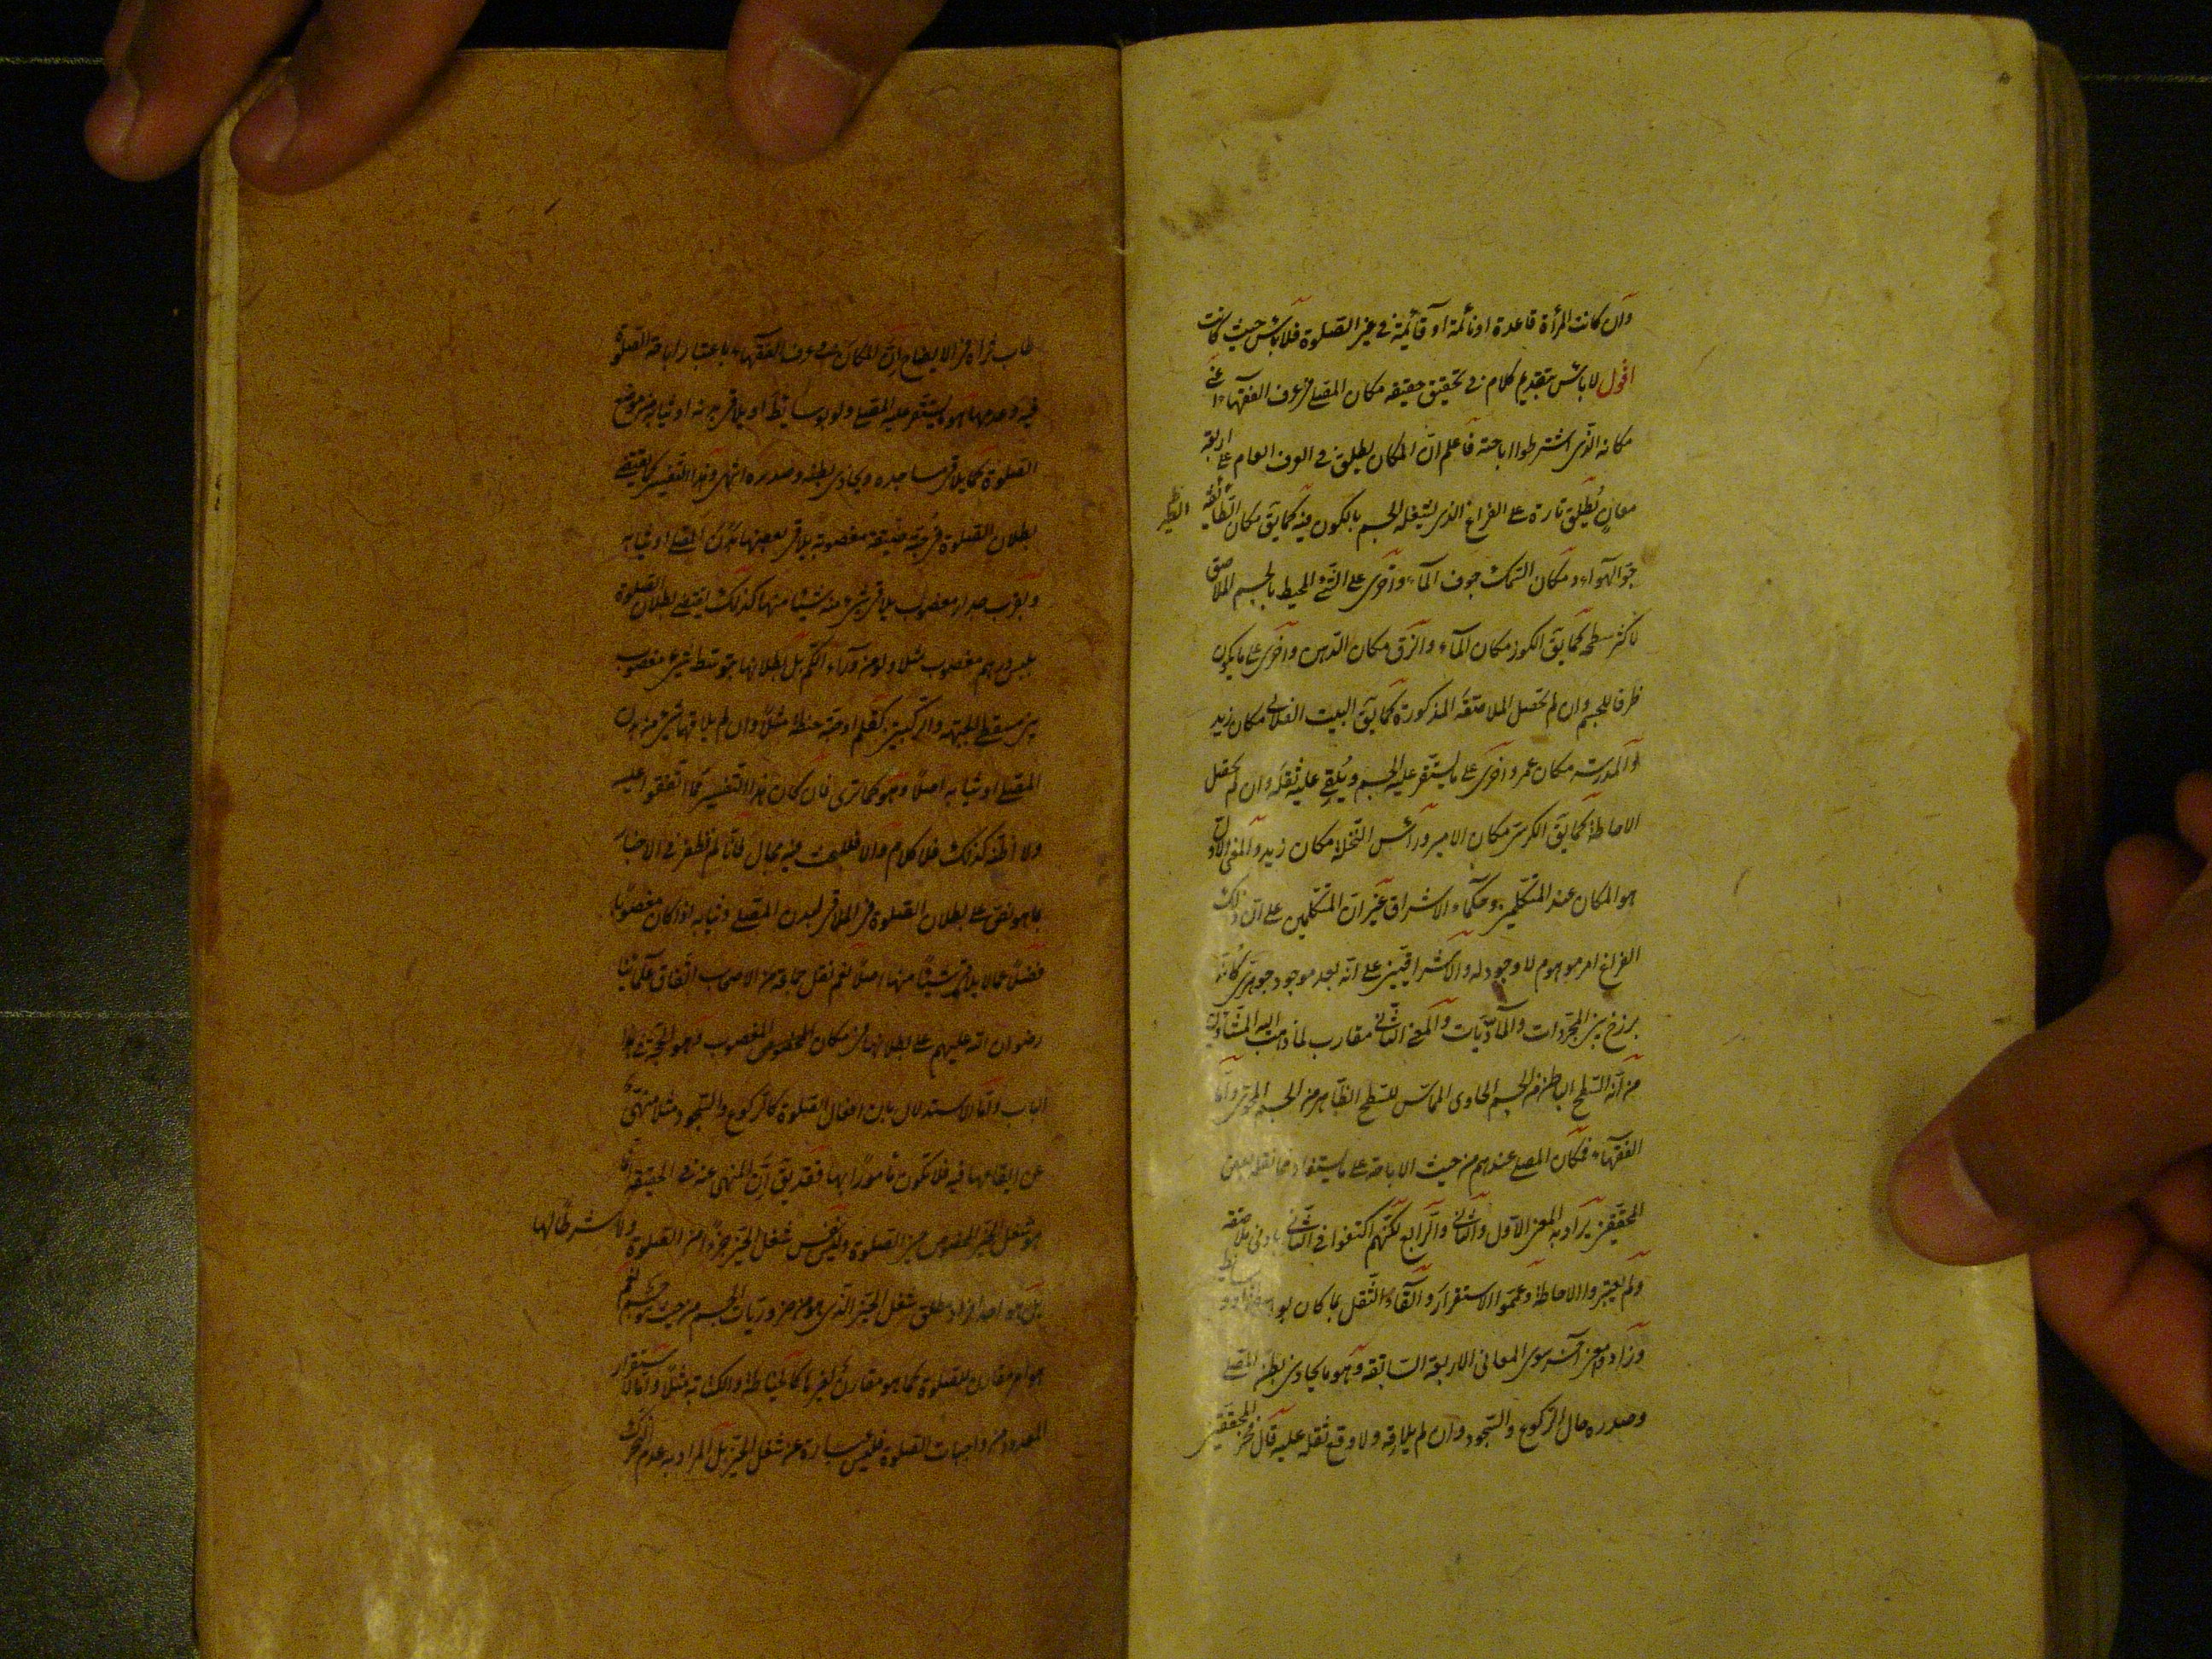 وان كانت المرأة قاعدة او نائمة او قائمة في غير الصلوة فلا بأس حيث كانت
اقول لا بأس بتقديم كلام في تحقيق حقيقة مكان المصلي في عرف الفقهاء اعني
مكانه الذي اشترطوا اباحته فاعلم ان المكان يطلق في العرف العام على اربعة
معان يُطلق تارة على الفراغ الذي يشغله الجسم بالكون فيه كما يق مكان الطير
جو الهواء ومكان السمك جوف الماء واخرى على الشيء المحيط بالجسم الملاصق
لاكثر سطحه كما يق الكوز مكان الماء والزق مكان الدهن واخرى على ما يكون
ظرفا للجسم وان لم تحصل الملاصقة المذكورة كما يق البيت الفلاني مكان زيد
والمدرسة مكان عمرو واخرى على ما يستقر عليه الجسم ويُلقي عليه ثقله وان لم تحصل
الاحاطة كما يق الكرسي مكان الامير ورأس النخلة مكان زيد والمعنى الاول
هو المكان عند المتكلمين وحكماء الاشراق غير ان المتكلمين على ان ذلك
الفراغ امر موهوم لا وجود له والاشراقيين على انه بعد موجود جوهري كأنه
برزخ بين المجردات والماديات والمعنى الثاني مقارب لما ذهب اليه المشاؤن
من انه السطح الباطن من الجسم الحاوي المماس للسطح الظاهر من الجسم المحوي واما
الفقهاء فمكان المصلي عندهم من حيث الاباحة على ما يستفاد مما نقله بعض
المحققين يراد به المعنى الاول والثاني والرابع لكنهم اكتفوا في الثاني بادنى ملاصقة
ولم يعتبروا الاحاطة وعمموا الاستقرار والقاء الثقل بما كان
وزادوا معنى آخر سوى المعاني الاربعة السابقة وهو ما يحاذي بطن المصلي
وصدره حال الركوع والسجود وان لم يلاقه ولا وقع ثقله عليه قال فخر المحققين
طاب ثراه في الايضاح ان المكان في عرف الفقهاء باعتبار اباحة الصلوة
فيه وعدمها هو ما يستقر عليه المصلي ولو بوسائط او يلاقي بدنه او ثيابه من موضع
الصلوة كما يلاقي مساجده ويحاذي بطنه وصدره انتهى وهذا التفسير كما يقتضي
بطلان الصلوة في خيمة ضيقة مغصوبة يلاقي بعضها بدن المصلي او ثيابه
وبقرب جدار مغصوب يلاقي شيء منه شيئا منهما كذلك يقتضي بطلان الصلوة
بلبس درهم مغصوب مثلا ولو من وراء الكم بل بطلانها بتوسط شيء مغصوب
بين مسقط الجبهة والركبتين كقلم او حبة حنطة مثلاً وان لم يلاقها شيء من بدن
المصلي او ثيابه اصلاً وهو كما ترى فان كان هذا التفسير مما اتفقوا عليه
ولا اظنه كذلك فلا كلام والا فللبحث فيه مجال فانا لم نظفر في الاخبار
بما هو نص على بطلان الصلوة في الملاقي لبدن المصلي وثيابه اذا كان مغصوبا
فضلاً عما لا يلاقي شيئاً منها اصلاً نعم نقل جماعة من الاصحاب اتفاق علمائنا
رضوان الله عليهم على بطلانها في مكان المخصوص المغصوب فهو الحجة في هذا
الباب واما الاستدلال بان افعال الصلوة كالركوع والسجود مثلا منهي
عن ايقاعها فيه فلا تكون مأموراً بها فقد يق ان المنهي عنه في الحقيقة انما
هو شغل الحيز المخصوص حين الصلوة وليس نفس شغل الحيز جزءاً من الصلوة ولا شرطاً لها
بل هو احد افراد مطلق شغل الحيز الذي هو من ضروريات الجسم من حيث هو جسم نعم
هو امر مقارن للصلوة كما هو مقارن لغيرها كالخياطة والكتابة مثلاً واما الاستقرار
المعدود من واجبات الصلوة فليس عبارة عن شغل الحيز بل المراد به عدم